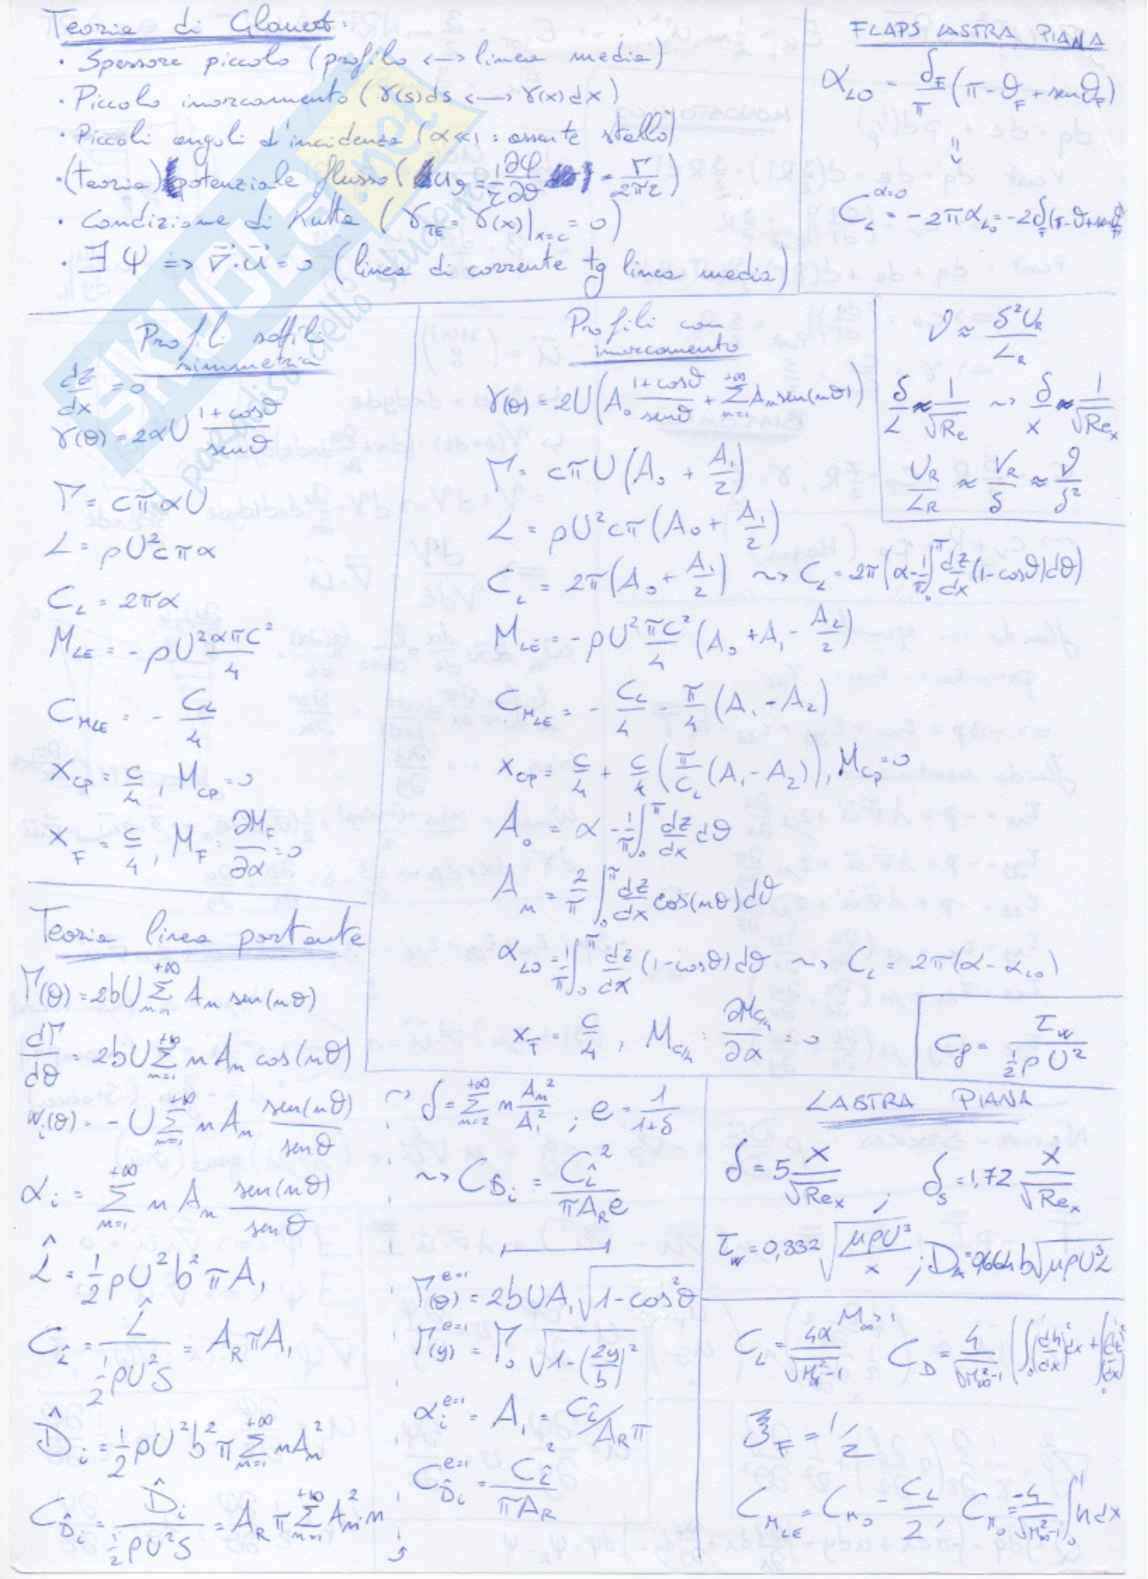 Teoria di Glauert:
· Spessore piccolo (profilo <—> linea media)
· Piccolo inarcamento (γ(s)ds <—> γ(x)dx)
· Piccoli angoli d'incidenza (α<<1 : assente stallo)
· (teoria) potenziale flusso (u_ϑ = 1/r ∂φ/∂ϑ = Γ/2πr)
· Condizione di Kutta (γ_TE = γ(x)|_x=c = 0)
· ∃ ψ => ∇·u = 0 (linea di corrente tg linea media)
FLAPS LASTRA PIANA
α_L0 = δ_F/π (π - ϑ_F + senϑ_F)
C_L^α=0 = -2πα_L0 = -2δ_F(π-ϑ+senϑ_F)
Profili sottili
simmetrici
dz/dx = 0
γ(ϑ) = 2αU (1+cosϑ)/senϑ
Γ = cπαU
L = ρU²cπα
C_L = 2πα
M_LE = -ρU² απc²/4
C_MLE = - C_L/4
x_CP = c/4 , M_CP = 0
x_F = c/4 , M_F : ∂M_F/∂α = 0
Profili con
inarcamento
γ(ϑ) = 2U(A_0 (1+cosϑ)/senϑ + Σ_n=1^+∞ A_n sen(nϑ))
Γ = cπU(A_0 + A_1/2)
L = ρU²cπ(A_0 + A_1/2)
C_L = 2π(A_0 + A_1/2) ~> C_L = 2π(α - 1/π ∫_0^π dz/dx (1-cosϑ)dϑ)
M_LE = -ρU² πc²/4 (A_0 + A_1 - A_2/2)
C_MLE = - C_L/4 - π/4 (A_1 - A_2)
x_CP = c/4 + c/4 (π/C_L (A_1 - A_2)), M_CP = 0
A_0 = α - 1/π ∫_0^π dz/dx dϑ
A_n = 2/π ∫_0^π dz/dx cos(nϑ)dϑ
α_L0 = 1/π ∫_0^π dz/dx (1-cosϑ)dϑ ~> C_L = 2π(α - α_L0)
x_F = c/4 , M_c/4 : ∂M_c/4/∂α = 0
ϑ ≈ δ²U_R/L_R
δ/L ≈ 1/√Re ~> δ/x ≈ 1/√Re_x
U_R/L_R ≈ V_R/δ ≈ ϑ/δ²
C_f = τ_w / ½ρU²
Teoria linea portante
Γ(ϑ) = 2bU Σ_n=1^+∞ A_n sen(nϑ)
dΓ/dϑ = 2bU Σ_n=1^+∞ n A_n cos(nϑ)
w_i(ϑ) = -U Σ_n=1^+∞ n A_n sen(nϑ)/senϑ
α_i = Σ_n=1^+∞ n A_n sen(nϑ)/senϑ
L̂ = ½ρU²b²πA_1
C_L̂ = L̂ / ½ρU²S = A_R πA_1
D̂_i = ½ρU²b²π Σ_n=1^+∞ nA_n²
C_D̂i = D̂_i / ½ρU²S = A_R π Σ_n=1^+∞ A_n² n
~> δ = Σ_n=2^+∞ n A_n²/A_1² ; e = 1/(1+δ)
~> C_D̂i = C_L̂² / πA_R e
Γ(ϑ)^e=1 = 2bUA_1 √(1-cos²ϑ)
Γ(y)^e=1 = Γ_0 √(1-(2y/b)²)
α_i^e=1 = A_1 = C_L̂ / A_R π
C_D̂i^e=1 = C_L̂² / πA_R
LASTRA PIANA
δ = 5 x/√Re_x ; δ_s = 1,72 x/√Re_x
τ_w = 0,332 √(μρU³/x) ; D_A = 0,664 b√(μρU³L)
C_L = 4α/√(M_∞²-1) M_∞>1 C_D = 4/√(M_∞²-1)
ξ_F = 1/2
C_MLE = C_M0 - C_L/2 , C_M0 = -4/√(M_∞²-1) ∫_0^1 h dx
SKUOLA.net